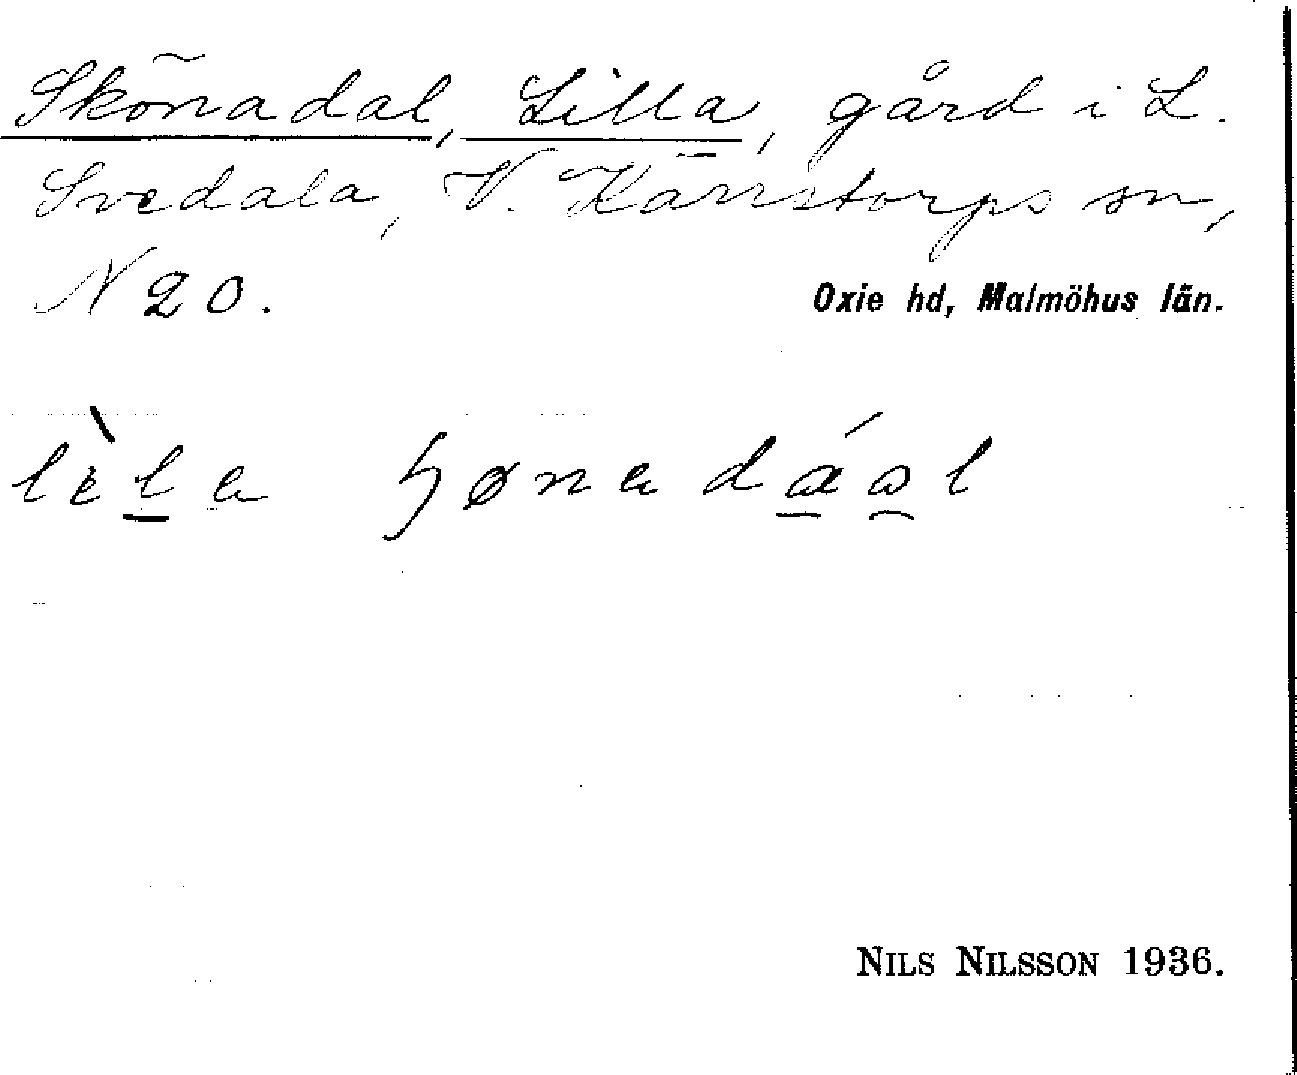 Skönadal, Lilla, gård i L.
Svedala, V. Kärrstorps sn,
N 20.
Oxie hd, Malmöhus län.
NILS NILSSON 1936.